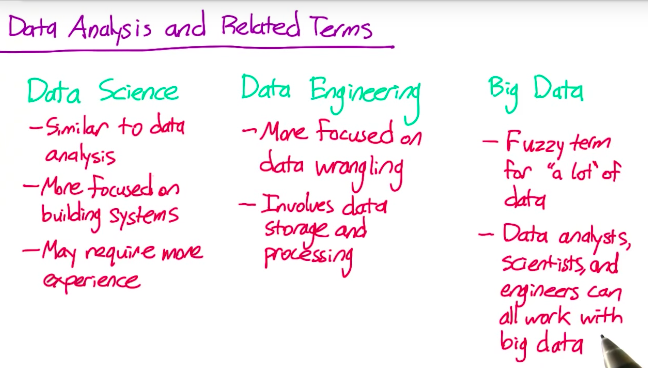 Data Analysis and Related Terms
Data Science
- Similar to data
analysis
- More focused on
building systems
- May require more
experience
Data Engineering
- More focused on
data wrangling
- Involves data
storage and
processing
Big Data
- Fuzzy term
for "a lot" of
data
- Data analysts,
scientists, and
engineers can
all work with
big data